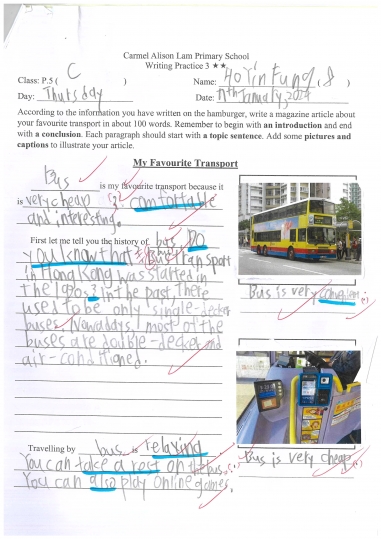 Carmel Alison Lam Primary School
Writing Practice 3 ★★
Class: P.5 ( C )
Name: Ho Yin Fung (8)
Day: Thursday
Date: 11th January, 2024
According to the information you have written on the hamburger, write a magazine article about
your favourite transport in about 100 words. Remember to begin with an introduction and end
with a conclusion. Each paragraph should start with a topic sentence. Add some pictures and
captions to illustrate your article.
My Favourite Transport
Bus is my favourite transport because it
is very cheap, comfortable
and interesting.
First let me tell you the history of bus. Do
you know that bus transport
in Hong Kong was started in
the 1920s? In the past, there
used to be only single-decker
buses. Nowadays, most of the
buses are double-decker and
air-conditioned.
Bus is very convenient.
Travelling by bus is relaxing.
You can take a rest on the bus.
You can also play online games.
Bus is very cheap.